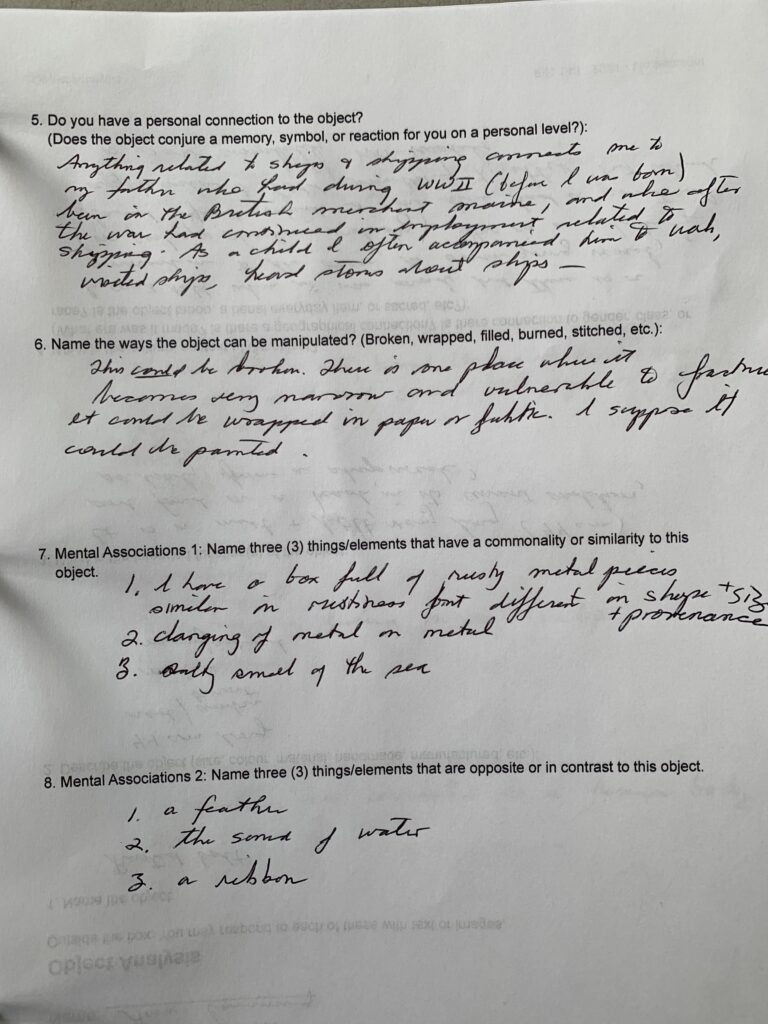 5. Do you have a personal connection to the object?
(Does the object conjure a memory, symbol, or reaction for you on a personal level?):
Anything related to ships & shipping connects me to
my father who had during WWII (before I was born)
been in the British merchant marine, and who after
the war had continued in employment related to
shipping. As a child I often accompanied him to
visited ships, heard stories about ships —
6. Name the ways the object can be manipulated? (Broken, wrapped, filled, burned, stitched, etc.):
This could be broken. There is one place where it
becomes very narrow and vulnerable to fracture
It could be wrapped in paper or fabric. I suppose it
could be painted.
7. Mental Associations 1: Name three (3) things/elements that have a commonality or similarity to this
object.
1. I have a box full of rusty metal pieces
similar in rustiness but different in shape + siz
+ provenance
2. clanging of metal on metal
3. salty smell of the sea
8. Mental Associations 2: Name three (3) things/elements that are opposite or in contrast to this object.
1. a feather
2. the sound of water
3. a ribbon
Object Analysis